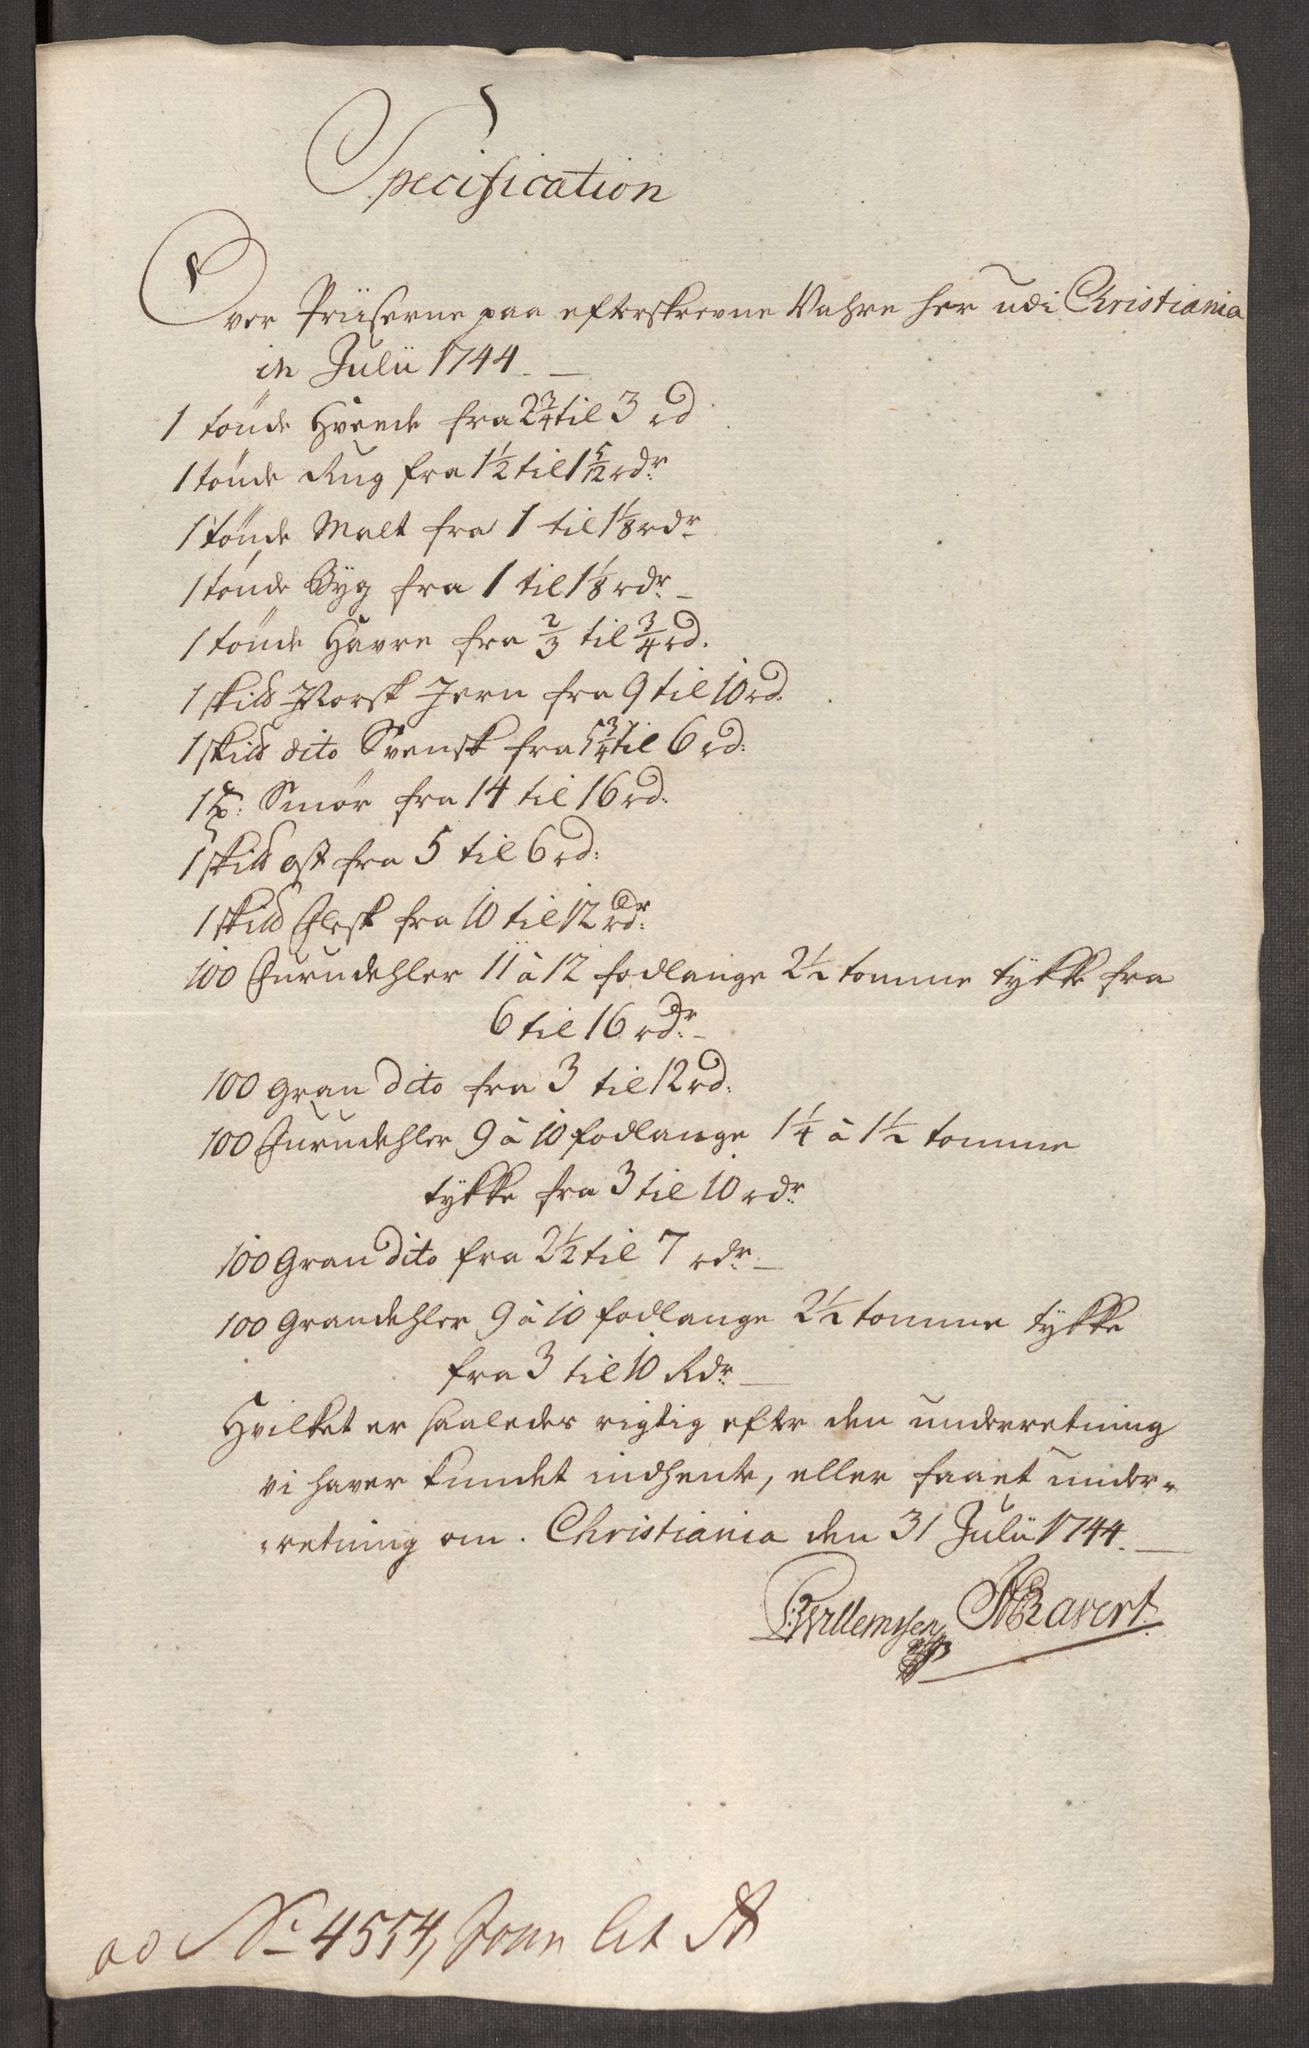 Specification
Over Priiserne paa efterskrevne Vahre her udi Christiania
in Julii 1744.
1 tönde Hveede fra 2 3/4 til 3 rd
1 tönde Rug fra 1 1/2 til 1 5/12 rdr
1 tönde Malt fra 1 til 1 1/8 rdr
1 tönde Byg fra 1 til 1 1/8 rdr
1 tönde Havre fra 2/3 til 3/4 rd.
1 skild Norsk Jern fra 9 til 10 rd.
1 skild dito Svensk fra 5 3/4 til 6 rd:
1 Smør fra 14 til 16 rd:
1 skild ost fra 5 til 6 rd:
1 skild Flesk fra 10 til 12 rdr:
100 Furudehler 11 à 12 fodlange 2 1/2 tomme tykke fra
6 til 16 rdr
100 gran dito fra 3 til 12 rd:
100 Furudehler 9 à 10 fodlange 1 1/4 à 1 1/2 tomme
tykke fra 3 til 10 rdr
100 Gran dito fra 2 1/2 til 7 rdr
100 Grandehler 9 à 10 fodlange 2 1/2 tomme tykke
fra 3 til 10 Rdr
Hvilket er saaledes rigtig efter den underretning
vi haver kundet indhente, eller faaet under-
retning om. Christiania den 31 Julii 1744.
Willemsen Ravert
ad No 4554, Lit A